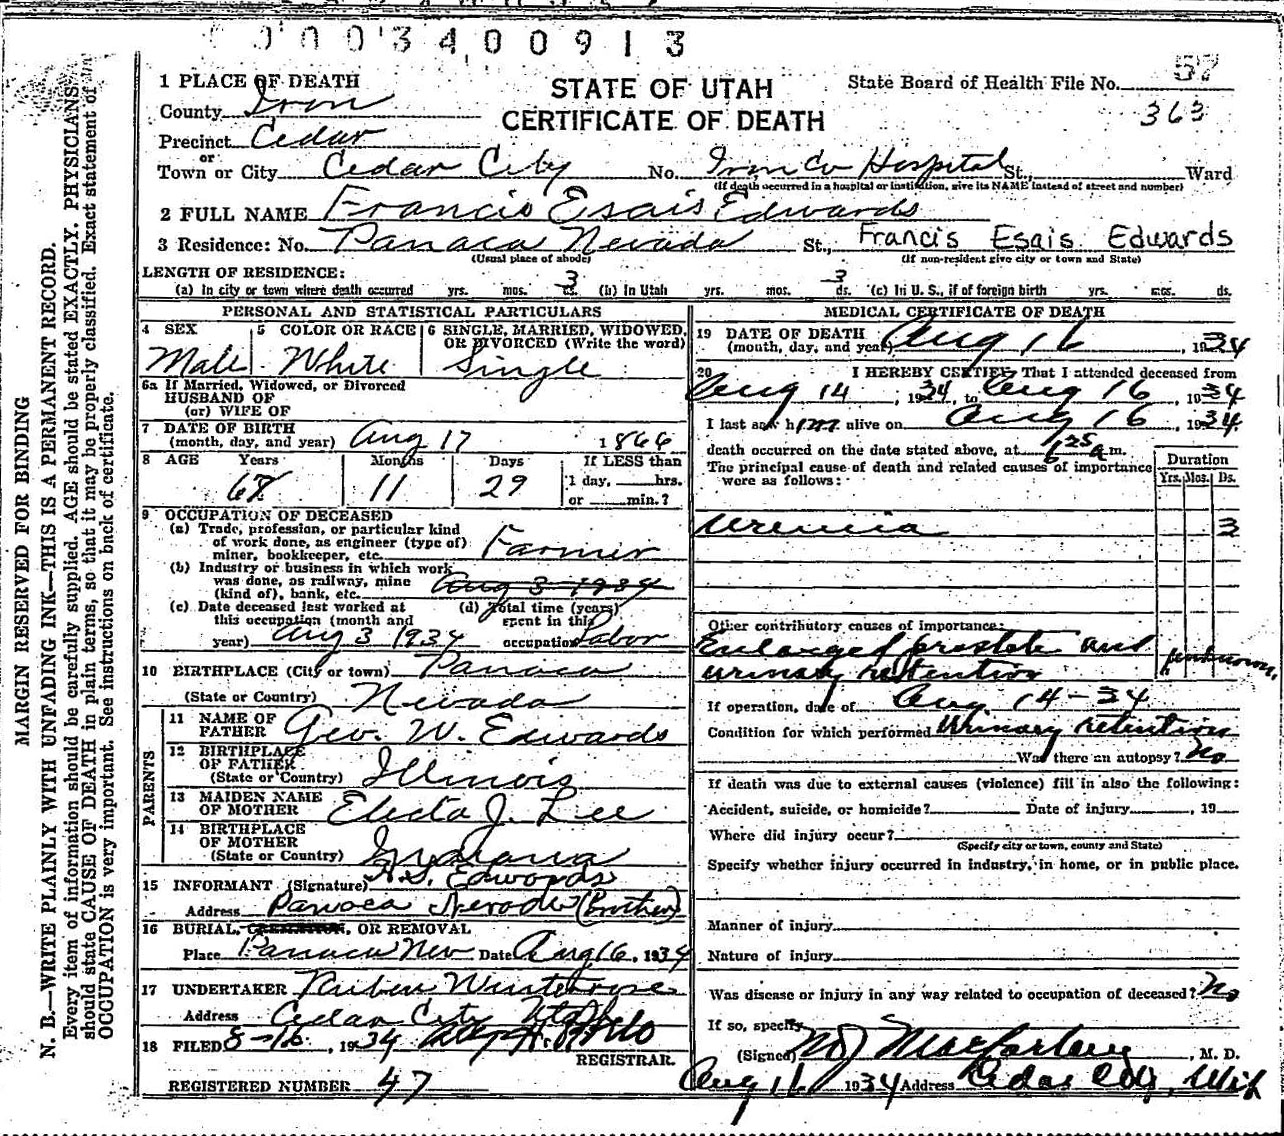 0003400913
57
363
1 PLACE OF DEATH
STATE OF UTAH
CERTIFICATE OF DEATH
State Board of Health File No.
County Iron
Precinct Cedar
or
Town or City Cedar City No. Iron Co Hospital St., Ward
(If death occurred in a hospital or institution, give its NAME instead of street and number)
2 FULL NAME Francis Esais Edwards
3 Residence: No. Panaca Nevada St., Francis Esais Edwards
(Usual place of abode) (If non-resident give city or town and State)
LENGTH OF RESIDENCE:
(a) In city or town where death occurred yrs. mos. 3 ds. (b) In Utah yrs. mos. 3 ds. (c) In U. S., if of foreign birth yrs. mos. ds.
PERSONAL AND STATISTICAL PARTICULARS
4 SEX Male
5 COLOR OR RACE White
6 SINGLE, MARRIED, WIDOWED, OR DIVORCED (Write the word) Single
6a If Married, Widowed, or Divorced
HUSBAND OF
(or) WIFE OF
7 DATE OF BIRTH
(month, day, and year) Aug 17 1866
8 AGE Years Months Days If LESS than
67 11 29 1 day, hrs.
or min.?
9 OCCUPATION OF DECEASED
(a) Trade, profession, or particular kind
of work done, as engineer (type of)
miner, bookkeeper, etc. Farmer
(b) Industry or business in which work
was done, as railway, mine
(kind of), bank, etc. Aug 3 1934
(c) Date deceased last worked at
this occupation (month and
year) Aug 3 1934
(d) Total time (years)
spent in this
occupation Labor
10 BIRTHPLACE (City or town) Panaca
(State or Country) Nevada
PARENTS
11 NAME OF
FATHER Geo. W. Edwards
12 BIRTHPLACE
OF FATHER
(State or Country) Illinois
13 MAIDEN NAME
OF MOTHER Electa J. Lee
14 BIRTHPLACE
OF MOTHER
(State or Country) Indiana
15 INFORMANT (Signature) Edwards
Address Panaca Nevada (Brother)
16 BURIAL, CREMATION, OR REMOVAL
Place Panaca Nev Date Aug 16, 1934
17 UNDERTAKER Ruben Winterrose
Address Cedar City Utah
18 FILED 8-16, 1934
REGISTRAR.
REGISTERED NUMBER 47
MEDICAL CERTIFICATE OF DEATH
19 DATE OF DEATH
(month, day, and year) Aug 16, 1934
20 I HEREBY CERTIFY That I attended deceased from
Aug 14, 1934, to Aug 16, 1934
I last saw him alive on Aug 16, 1934
death occurred on the date stated above, at 6 25 a m.
The principal cause of death and related causes of importance
were as follows:
Duration
Yrs. Mos. Ds.
Uremia 3
Other contributory causes of importance:
Enlarged prostate and
urinary retention unknown
If operation, date of Aug 14-34
Condition for which performed Urinary retention
Was there an autopsy? No
If death was due to external causes (violence) fill in also the following:
Accident, suicide, or homicide? Date of injury , 19
Where did injury occur?
(Specify city or town, county and State)
Specify whether injury occurred in industry, in home, or in public place.
Manner of injury
Nature of injury
Was disease or injury in any way related to occupation of deceased? No
If so, specify
(Signed) Macfarlane, M. D.
Aug 16 1934 Address Cedar City, Utah
MARGIN RESERVED FOR BINDING
N. B.—WRITE PLAINLY WITH UNFADING INK—THIS IS A PERMANENT RECORD.
Every item of information should be carefully supplied. AGE should be stated EXACTLY. PHYSICIANS
should state CAUSE OF DEATH in plain terms, so that it may be properly classified. Exact statement of
OCCUPATION is very important. See instructions on back of certificate.